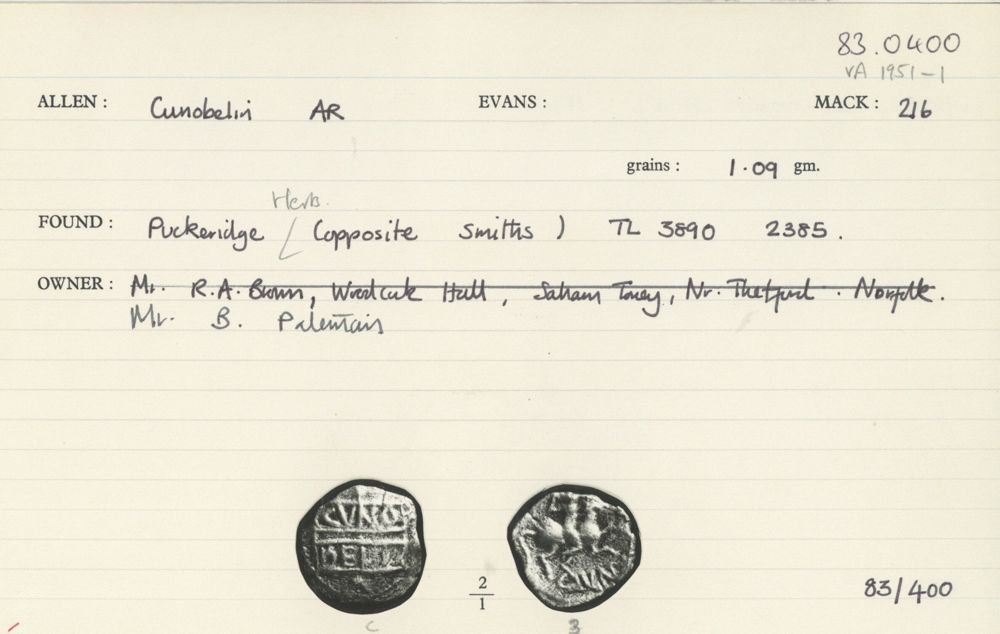 83.0400
VA 1951-1
ALLEN : Cunobelin AR EVANS : MACK : 216
grains : 1.09 gm.
Herts.
FOUND : Puckeridge (opposite Smiths) TL 3890 2385.
OWNER : Mr. R.A. Brown, Woodcock Hall, Saham Toney, Nr. Thetford. Norfolk.
Mr. B.
CUNO
BELI
CUN
2
1
C B
83/400